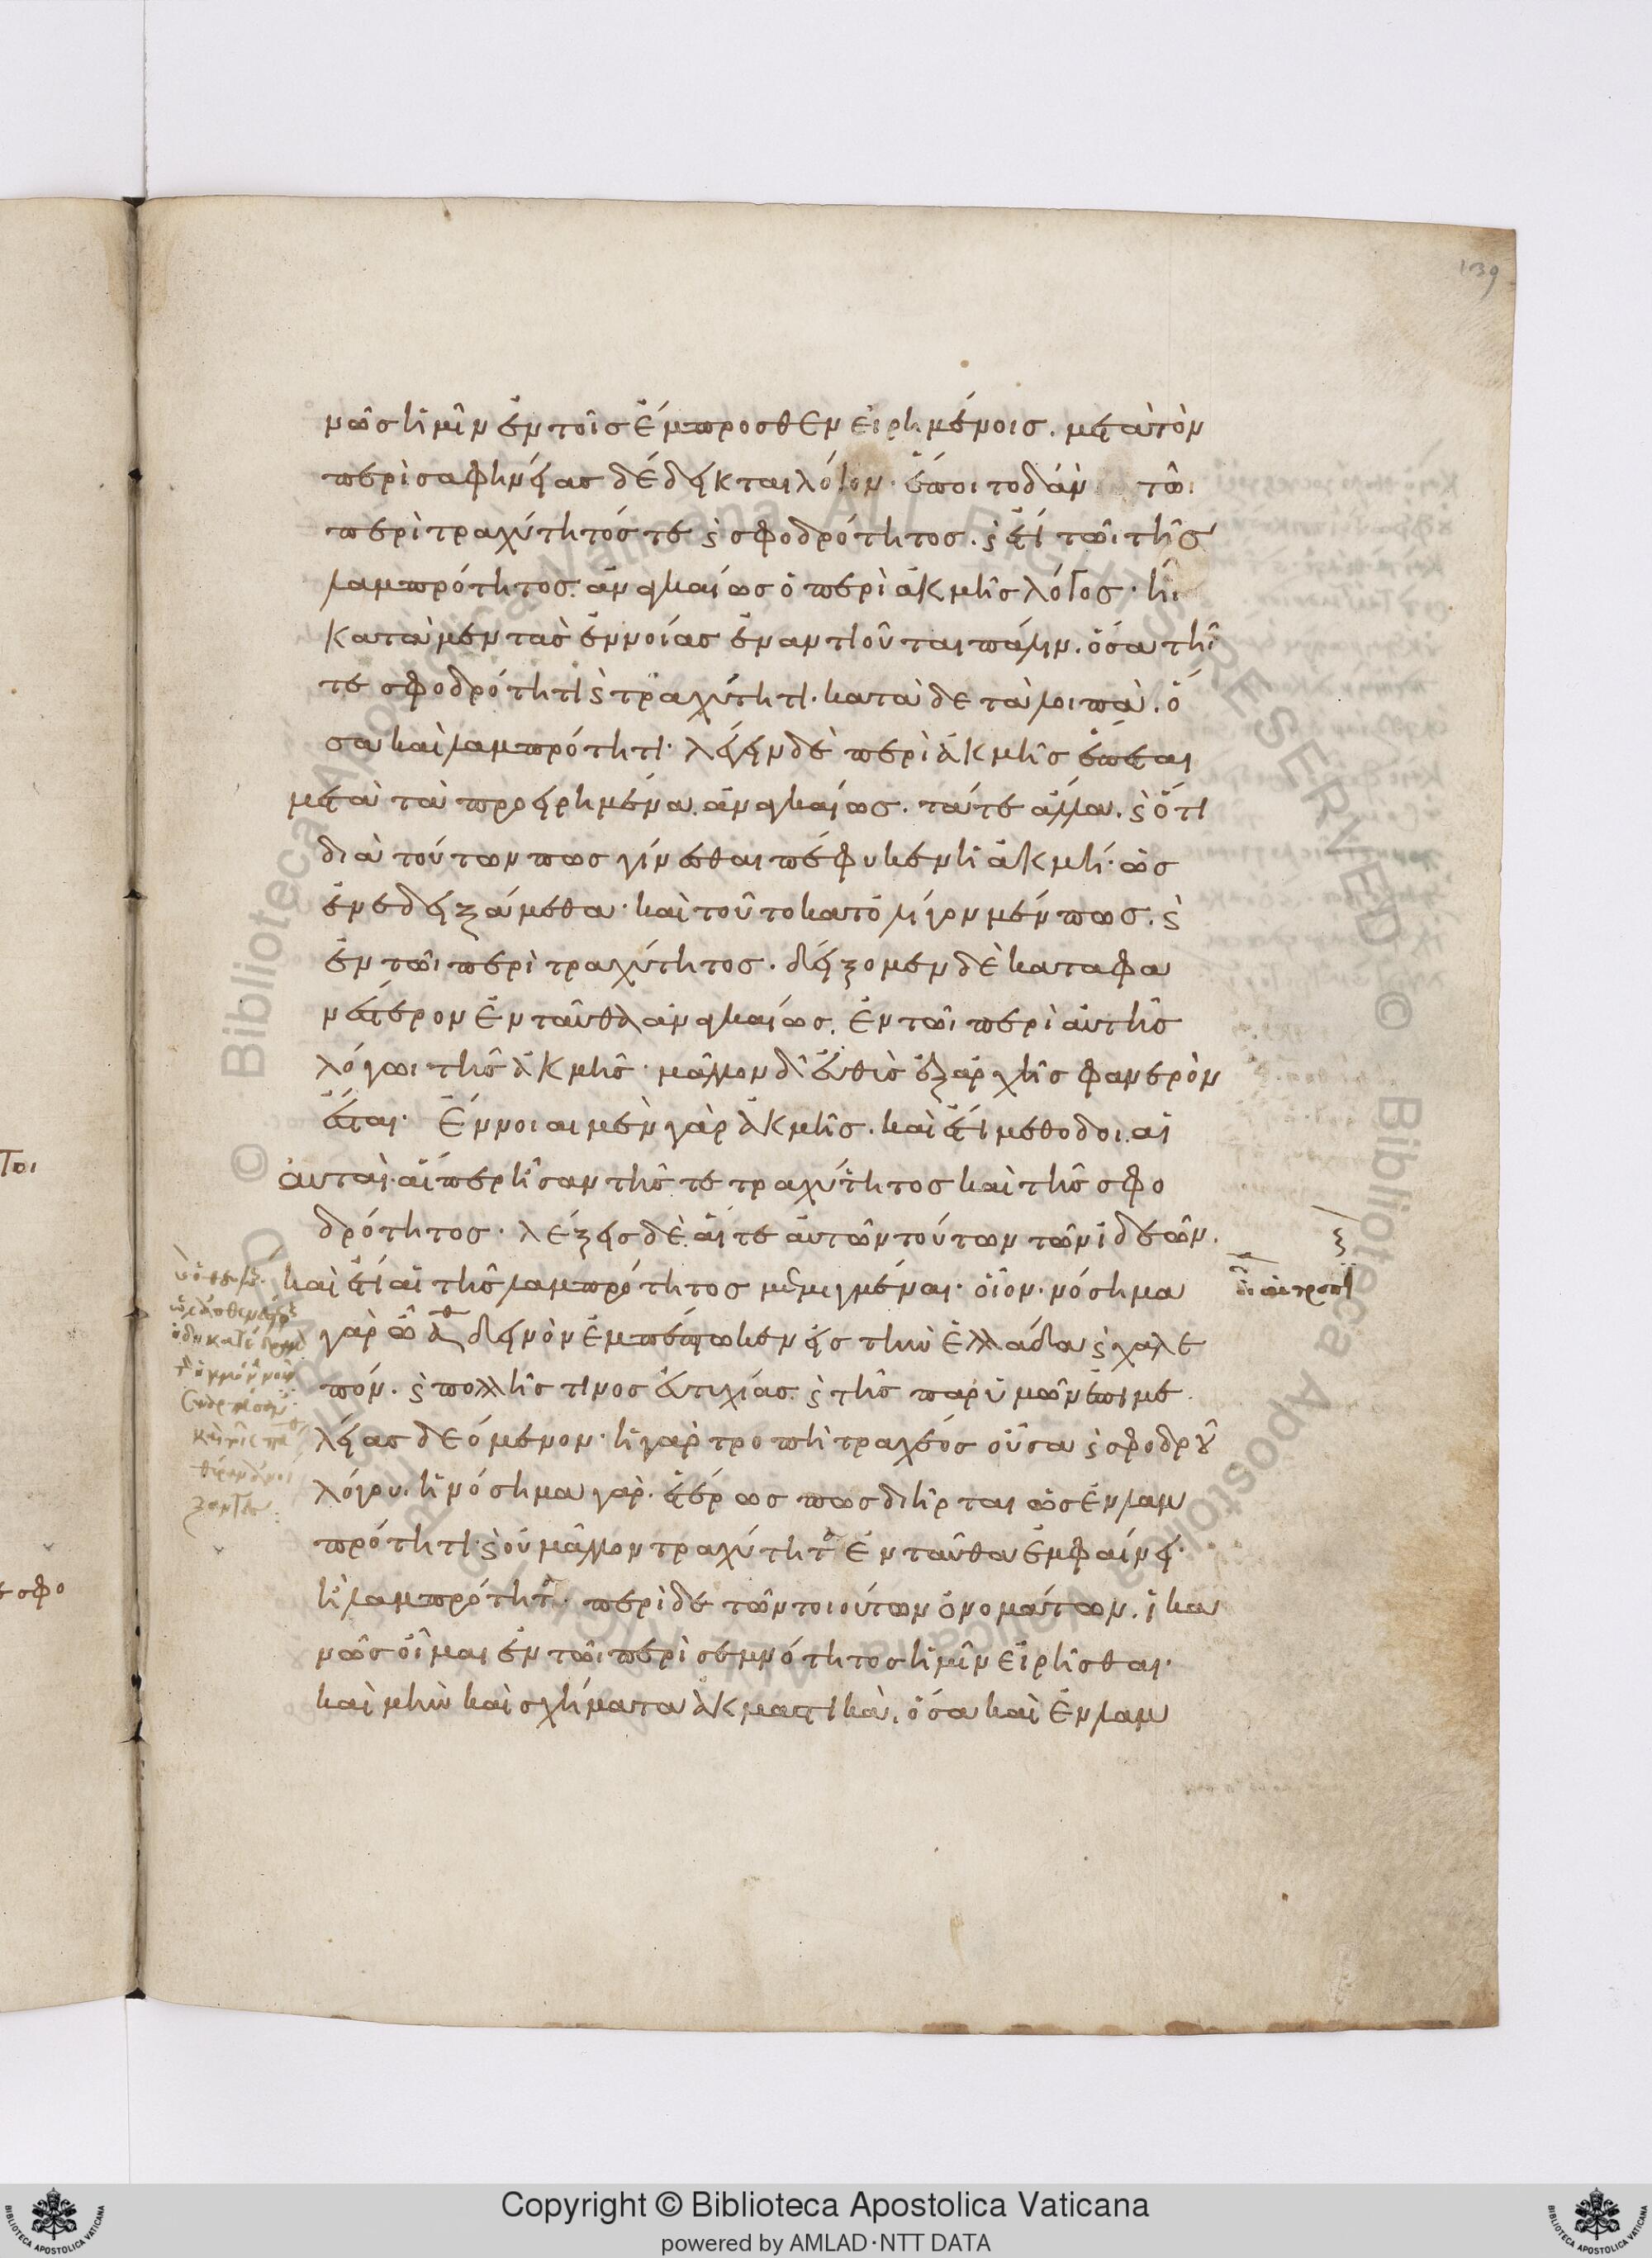 139
νῶς ἡμῖν ἐν τοῖς ἔμπροσθεν εἰρημένοις. μετὰ τὸν
περὶ σαφηνείας δέδεικται λόγον. ἕποιτο δ' ἂν τῶι
περὶ τραχύτητός τε καὶ σφοδρότητος. καὶ ἔτι τῶι τῆς
λαμπρότητος. ἀναγκαίως ὁ περὶ ἀκμῆς λόγος. ἣ
κατὰ μὲν τὰς ἐννοίας ἐναντιοῦται πάλιν. ὅσα τῆι
τε σφοδρότητι καὶ τραχύτητι. κατὰ δὲ τὰ λοιπὰ. ὅ
σα καὶ λαμπρότητι. λέγειν δὲ περὶ ἀκμῆς ἕπεται
μετὰ τὰ προειρημένα. ἀναγκαίως. τά τε ἄλλα. καὶ ὅτι
διὰ τούτων πως γίνεσθαι πέφυκεν ἡ ἀκμή. ὡς
ἐνεδειξάμεθα. καὶ τοῦτο κατ' ὀλίγον μέν πως. καὶ
ἐν τῶι περὶ τραχύτητος. δείξομεν δὲ καταφα
νέστερον ἐνταῦθα ἀναγκαίως. ἐν τῶι περὶ αὐτῆς
λόγωι τῆς ἀκμῆς. μᾶλλον δ' εὐθὺς ἐξ ἀρχῆς φανερὸν
ἔσται. ἔννοιαι μὲν γὰρ ἀκμῆς. καὶ ἔτι μέθοδοι. αἱ
αὐταὶ. αἵπερ ἦσαν τῆς τε τραχύτητος καὶ τῆς σφο
δρότητος. λέξεις δὲ. αἵ τε αὐτῶν τούτων τῶν ἰδεῶν.
καὶ ἔτι αἱ τῆς λαμπρότητος μεμιγμέναι. οἷον. νόσημα
γὰρ ὦ ἄνδρες Ἀθηναῖοι δεινὸν ἐμπέπτωκεν εἰς τὴν ἑλλάδα καὶ χαλε
πόν. καὶ πολλῆς τινος εὐτυχίας. καὶ τῆς παρ' ὑμῶν ἐπιμε
λείας δεόμενον. ἡ γὰρ τροπὴ τραχέος οὖσα καὶ σφοδροῦ
λόγου. ἡ νόσημα γὰρ. ἑτέρως πως διῆρται ὡς ἐν λαμ
πρότητι. καὶ οὐ μᾶλλον τραχύτητα ἐνταῦθα ἐμφαίνει.
ἢ λαμπρότητα. περὶ δὲ τῶν τοιούτων ὀνομάτων. ἱκα
νῶς οἶμαι ἐν τῶι περὶ σεμνότητος ἡμῖν εἰρῆσθαι.
καὶ μὴν καὶ σχήματα ἀκμαστικὰ. ὅσα καὶ ἐν λαμ
Copyright © Biblioteca Apostolica Vaticana
powered by AMLAD·NTT DATA